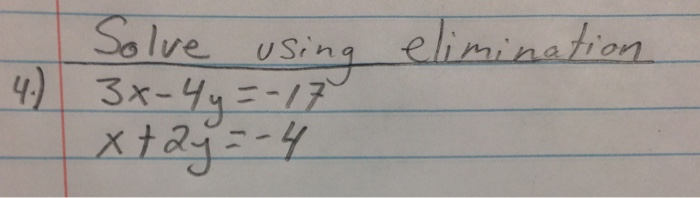 Solve using elimination
4.) 3x-4y=-17
x+2y=-4